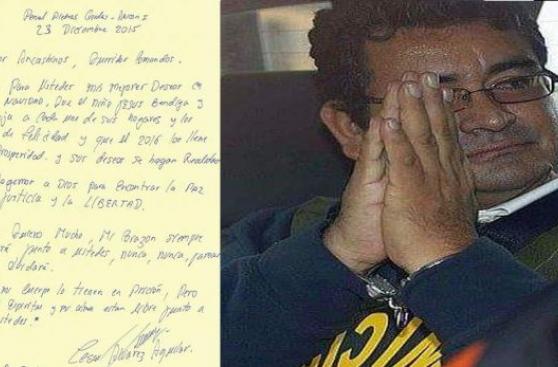 Penal Piedras Gordas - Ancon I
23 Diciembre 2015
Ancashinos, Queridos
Para Ustedes mis mejores Deseos
Navidad, Que el niño Jesus Bendiga y
a Cada uno de sus hogares y los
de felicidad y que el 2016 los llene
Prosperidad. y sus deseos se hagan Realidad
a Dios para encontrar la Paz
Justicia y la LIBERTAD.
Quiero Mucho, Mi Corazon siempre
junto a ustedes, nunca, nunca,
cuerpo lo tienen en Prisión, Pero
Espiritu y mi alma estan libre junto a
ustedes."
Cesar Alvarez Aguilar.